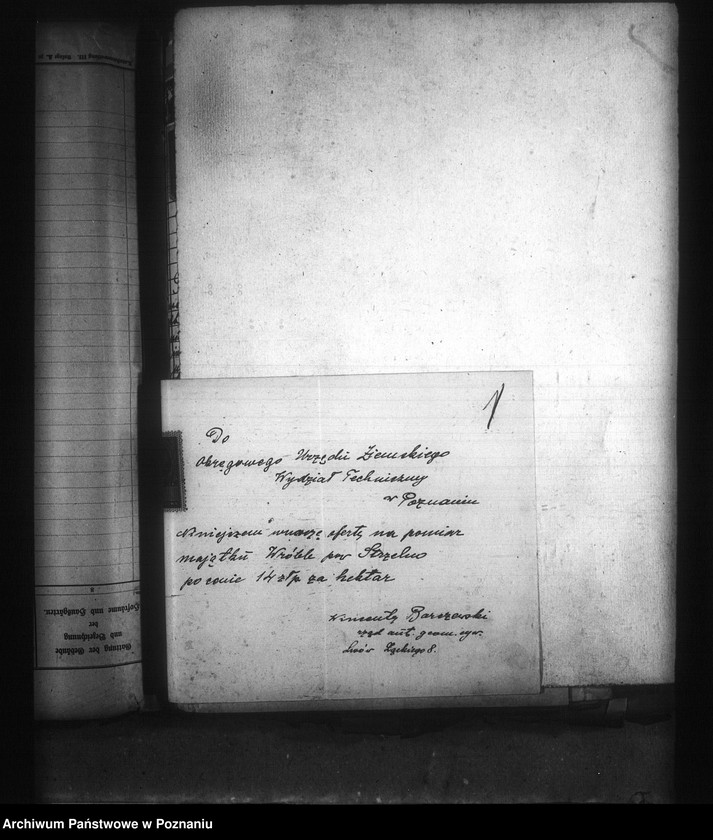 Do
Okręgowego Urzędu Ziemskiego
Wydział Techniczny
w Poznaniu
Niniejszem wnoszę ofertę na pomiar
majątku Wróble pow Strzelno
po cenie 14 złp za hektar
Wincenty Barszewski
rząd. aut. geom. cyw.
Lwów Łąckiego 8.
Gattung der Gebäude
und Bezeichnung
der
Hofräume und Hausgärten.
Archiwum Państwowe w Poznaniu